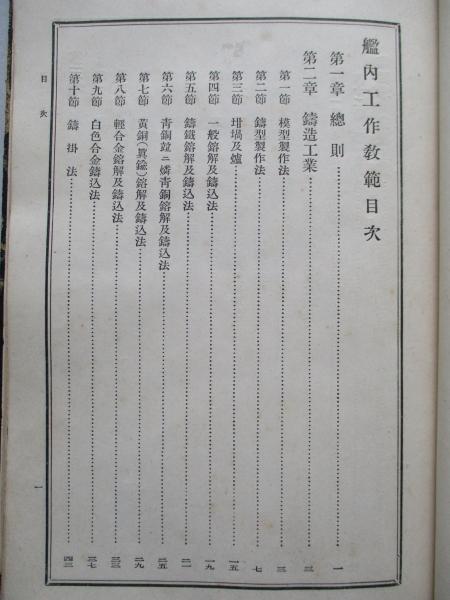 艦內工作敎範目次
第一章 總則 一
第二章 鑄造工業 三
第一節 模型製作法 三
第二節 鑄型製作法 七
第三節 坩堝及爐 一五
第四節 一般鎔解及鑄込法 一九
第五節 鑄鐵鎔解及鑄込法 二一
第六節 靑銅竝ニ燐靑銅鎔解及鑄込法 二五
第七節 黃銅(眞鍮)鎔解及鑄込法 二九
第八節 輕合金鎔解及鑄込法 三三
第九節 白色合金鑄込法 三七
第十節 鑄掛法 四三
目次
一